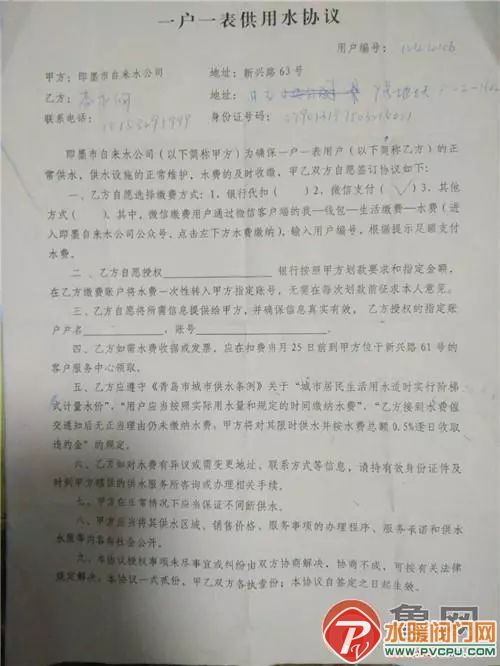 一户一表供用水协议
用户编号：
甲方：即墨市自来水公司 地址：新兴路 63 号
乙方： 地址：
联系电话： 身份证号码：
即墨市自来水公司（以下简称甲方）为确保一户一表用户（以下简称乙方）的正
常供水，供水设施的正常维护，水费的及时收缴，甲乙双方自愿签订协议如下：
一、乙方自愿选择缴费方式：1、银行代扣（ ）2、微信支付（✓）3、其他
方式（ ）。其中，微信缴费用户通过微信客户端的我—钱包—生活缴费—水费（进
入即墨自来水公司公众号，点击左下方水费缴纳），输入用户编号，根据提示足额支付
水费。
二、乙方自愿授权 银行按照甲方划款要求和指定金额，
在乙方缴费账户将水费一次性转入甲方指定账号，无需在每次划款前征求本人意见。
三、乙方自愿将所需信息提供给甲方，并确保信息真实有效，乙方授权的指定账
户户名 ，账号 。
四、乙方如需水费收据或发票，应在扣费当月 25 日前到甲方位于新兴路 61 号的
客户服务中心领取。
五、乙方应遵守《青岛市城市供水条例》关于“城市居民生活用水适时实行阶梯
式计量水价”，“用户应当按照实际用水量和规定的时间缴纳水费”，“乙方接到水费催
交通知后无正当理由仍未缴纳水费，甲方将对其限时供水并按水费总额 0.5%逐日收取
违约金”的规定。
六、乙方如对水费有异议或需变更地址、联系方式等信息，请持有效身份证件及
时到甲方辖区的供水服务所咨询或办理相关手续。
七、甲方在正常情况下应当保证不间断供水。
八、甲方应当将其供水区域、销售价格、服务事项的办理程序、服务承诺和供水
水服务内容向社会公开。
九、本协议授权事项未尽事宜或纠纷由双方协商解决，协商不成，可按有关法律
规定解决。本协议一式贰份，甲乙双方各执壹份；本协议自签定之日起生效。
鲁网
水暖阀门网
WWW.PVCPU.COM